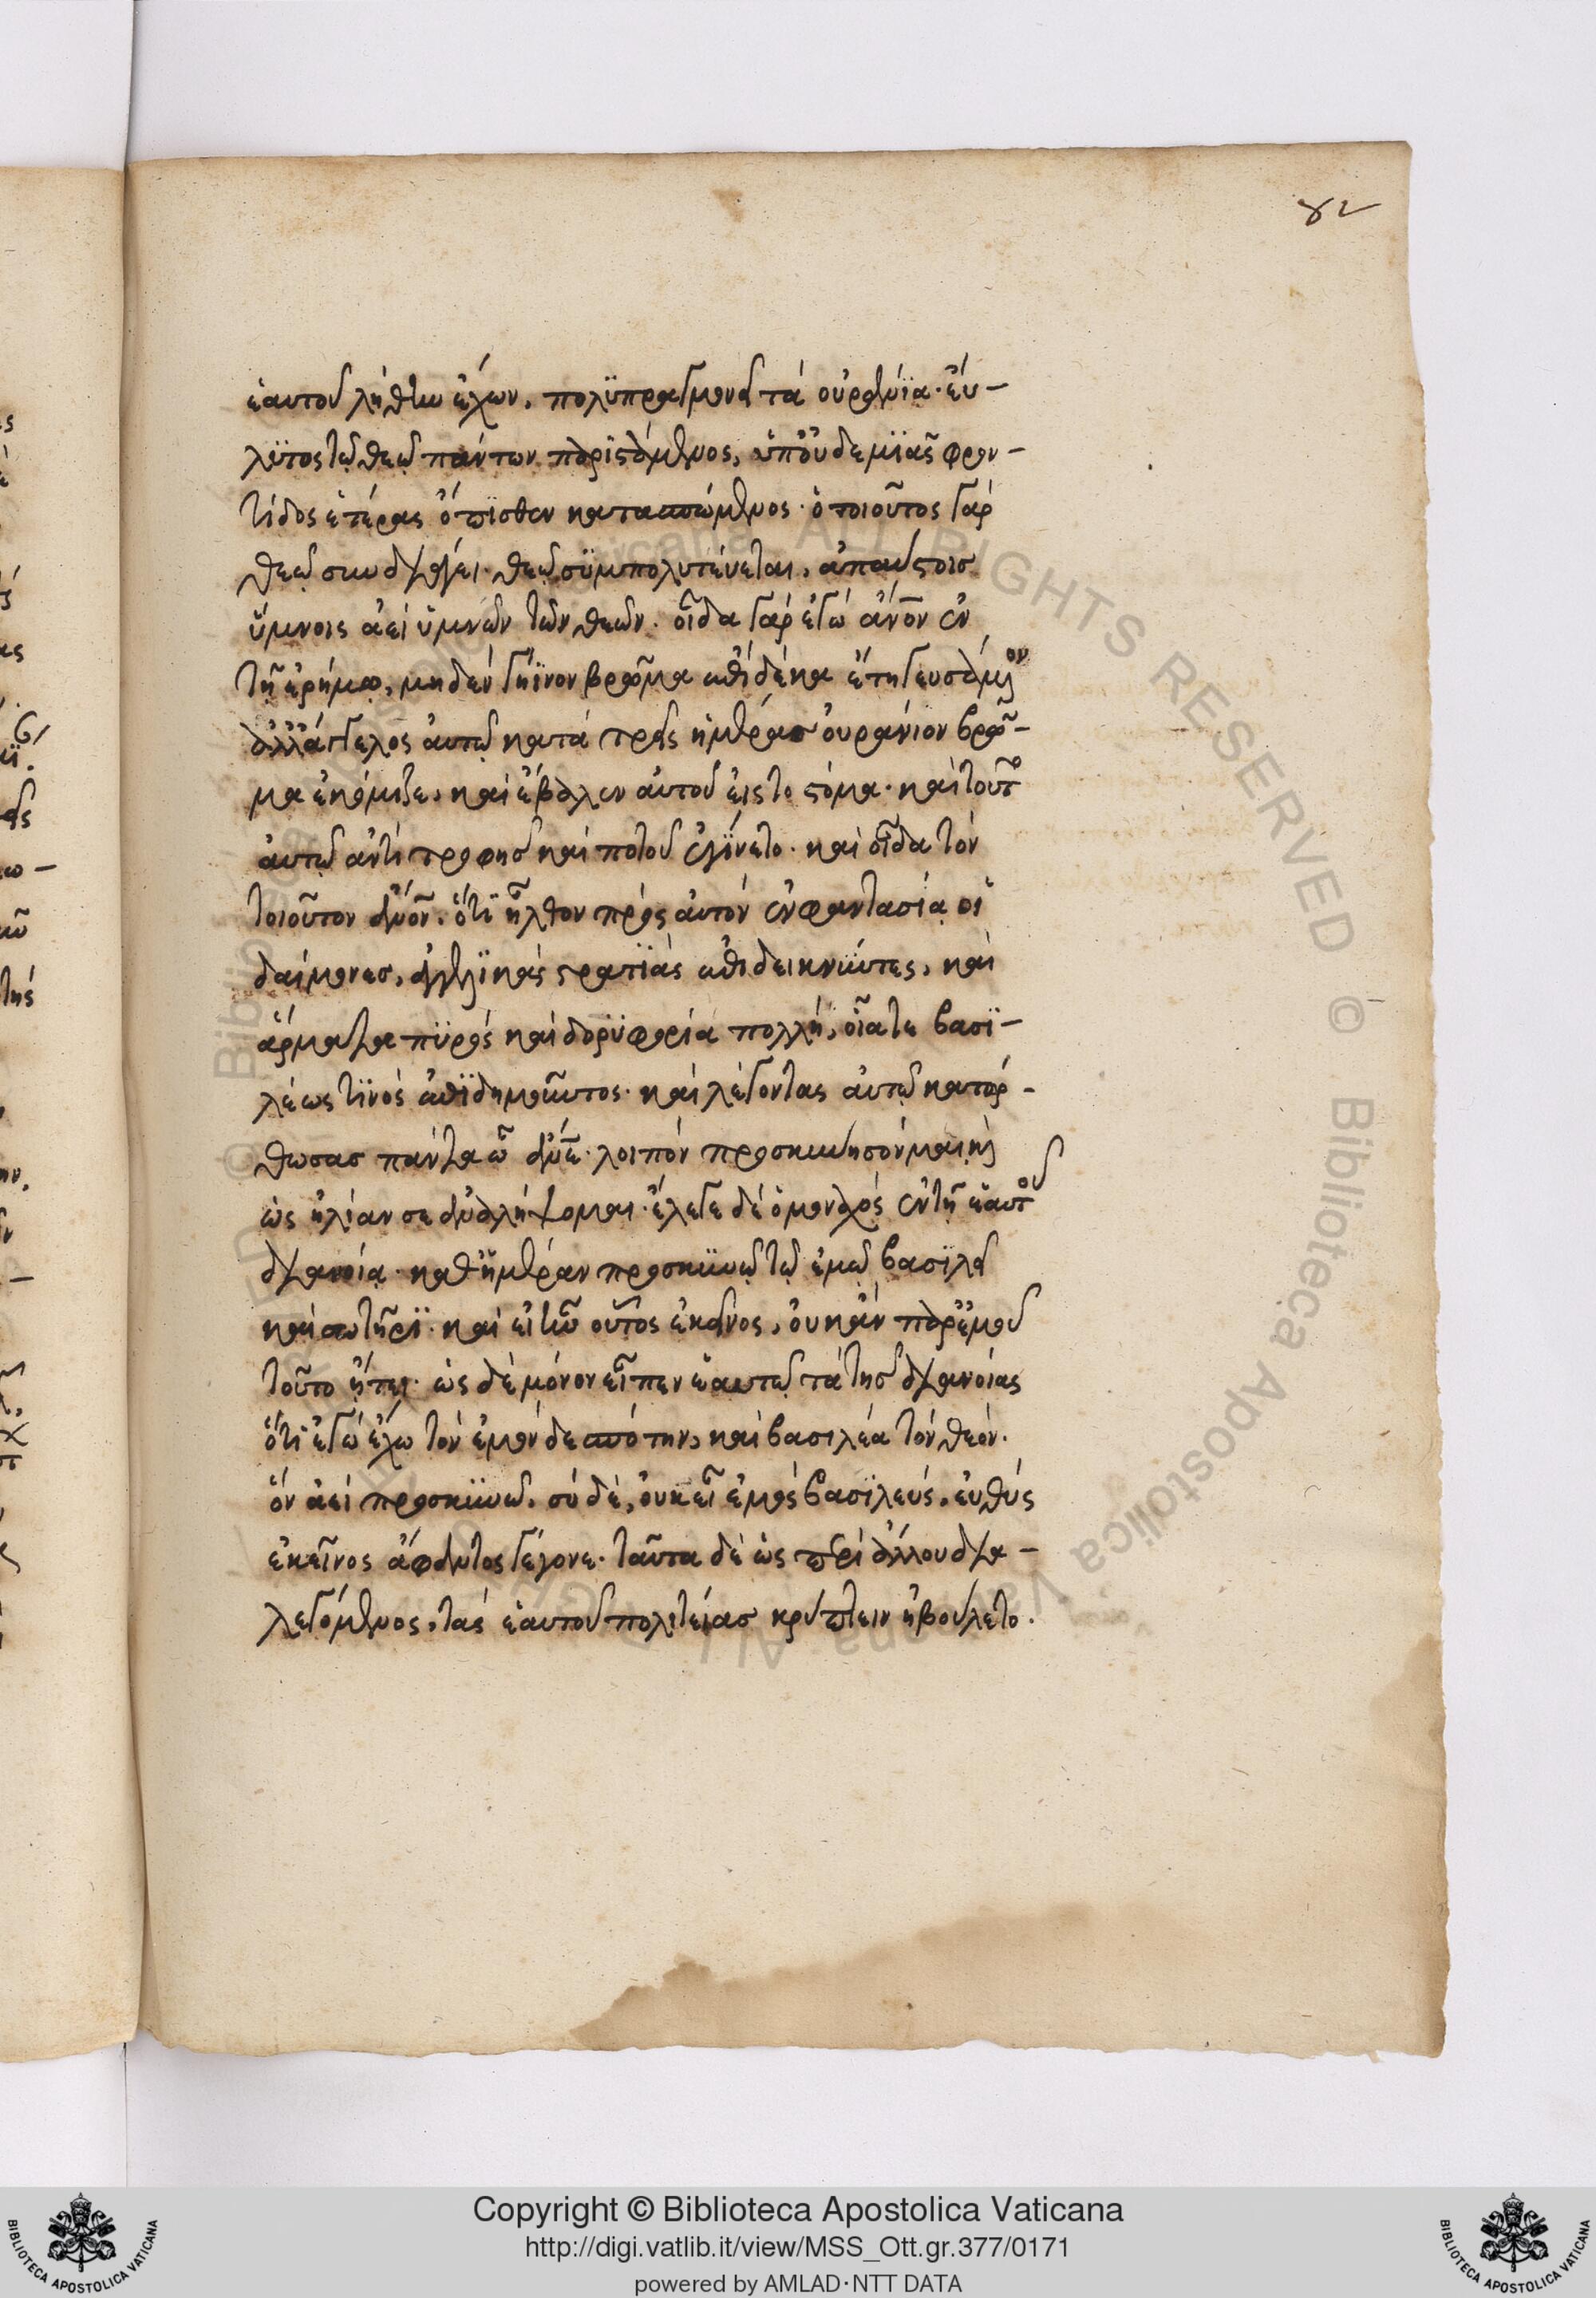 82
ἑαυτοῦ λήθην ἔχων, πολϋπραγμονεῖ τὰ οὐράνϊα· ἐυ-
λϋτος τῷ θεῷ πάντων παριστάμενος, ὑπ' οὐδεμϊᾶς φρον-
τίδος ἑτέρας ὄπϊσθεν κατασπώμενος· ὁ τοιοῦτος γὰρ
θεῷ συνδιάγει· θεῷ σϋμπολιτεύεται, ἀπαύστοισ
ὕμνοις ἀεὶ ὑμνῶν τὸν θεόν. οἶδα γὰρ ἐγὼ ἀνον ἐν
τῇ ἐρήμω, μηδὲν γήϊνον βρῶμα ἐπὶ δέκα ἔτη γευσάμενον
ἀλλ' ἄγγελος ἀυτῷ κατὰ τρεῖς ἡμέρασ ὀυράνιον βρῶ-
μα ἐκόμιζε, καὶ ἔβαλεν ἀυτοῦ ἐις τὸ στόμα· καὶ τοῦτο
ἀυτῷ ἀντὶ τροφησ καὶ ποτοῦ ἐγίνετο. καὶ οἶδα τὸν
τοιοῦτον ἀνον. ὅτϊ ἦλθον πρὸς ἀυτὸν ἐν φαντασία οἱ
δαίμονεσ, ἀγγελϊκὰς στρατϊὰς ἐπιδεικνῦντες, καὶ
ἅρματα πϋρὸς καὶ δορϋφορία πολλὴ, οἷα τε βασϊ-
λέως τϊνὸς ἐπϊδημοῦντος· καὶ λέγοντας ἀυτῷ κατόρ-
θωσασ πάντα ὦ ἀνε· λοιπὸν προσκύνησόν μαι καὶ
ὡς ἠλίαν σε ἀναλήψομαι. ἔλεγε δὲ ὁ μοναχὸς ἐν τῇ ἑαυτοῦ
διανοία· καθ' ἡμέραν προσκϋνῶ τῷ ἐμῷ βασϊλεῖ
καὶ σωτῆρϊ· καὶ εἰ ἦν οὗτος ἐκεῖνος, ὀυκ ἂν παρ' ἐμοῦ
τοῦτο ἤτει· ὡς δὲ μόνον εἶπεν ἑαυτῷ τὰ τησ διανοίας
ὅτϊ ἐγὼ ἔχω τὸν ἐμὸν δεσπότην, καὶ βασιλέα τὸν θεόν.
ὃν ἀεὶ προσκϋνῶ. σὺ δὲ, ὀυκ εἶ ἐμὸς βασϊλεύς. ἐυθὺς
ἐκεῖνος ἄφαντος γέγονε. ταῦτα δὲ ὡς περὶ ἄλλου δια-
λεγόμενος, τὰς ἑαυτοῦ πολιτείασ κρύπτειν ἠβούλετο.
Copyright © Biblioteca Apostolica Vaticana
http://digi.vatlib.it/view/MSS_Ott.gr.377/0171
powered by AMLAD·NTT DATA